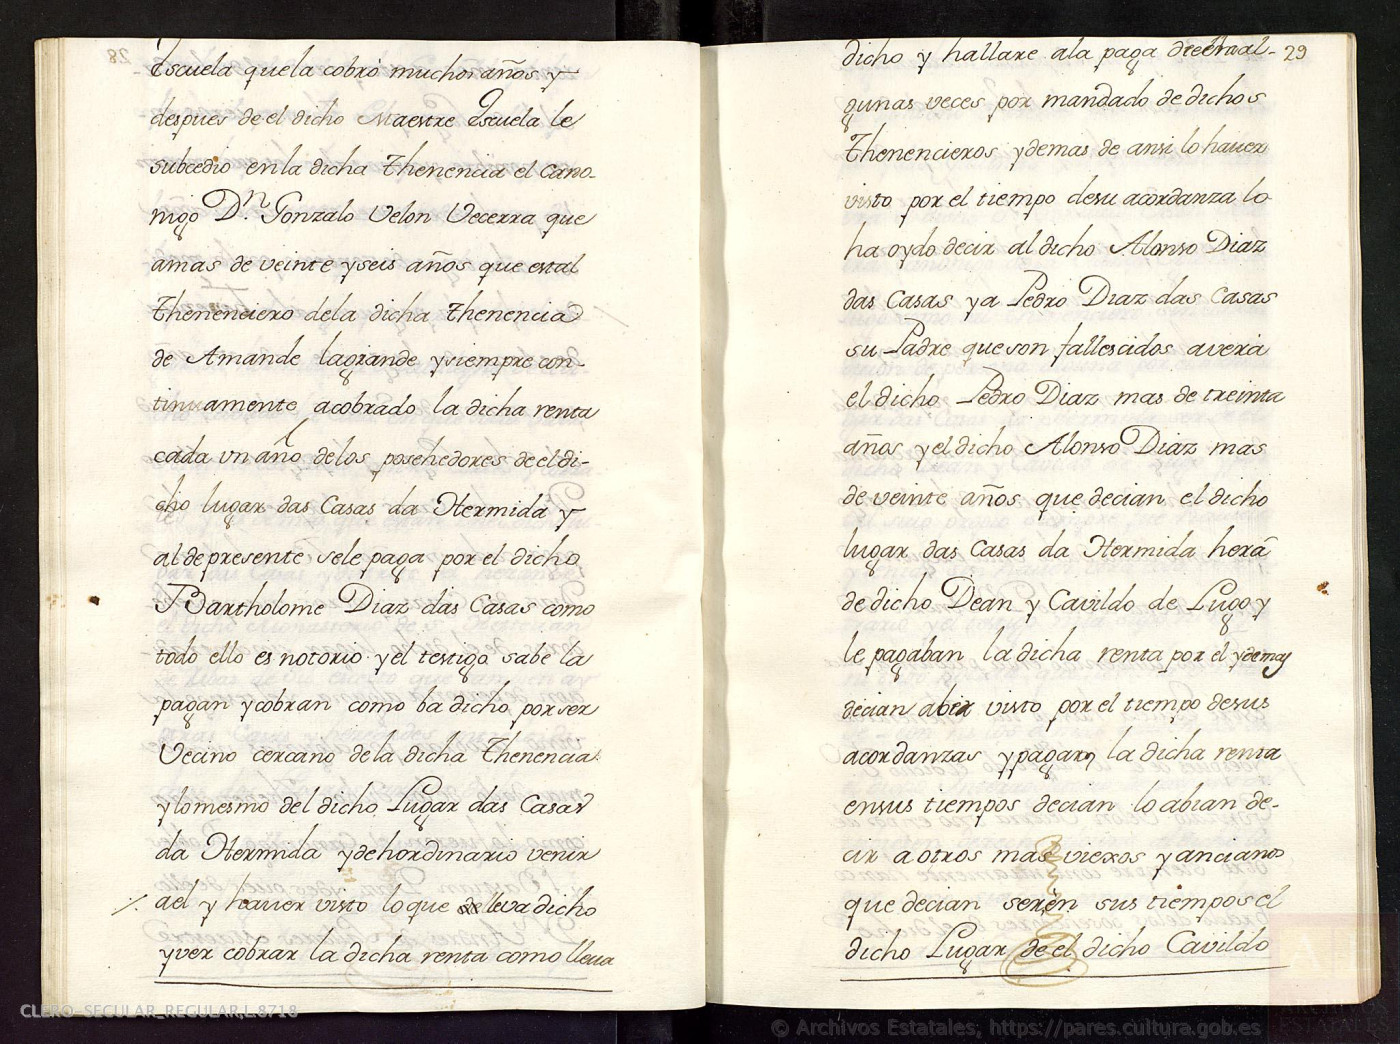 Escuela quela cobró muchos años y
despues de el dicho Maestre Escuela le
subcedio en la dicha Thenencia el Cano-
nigo D.n Gonzalo Velon Vecerra que
amas de veinte yseis años que estal
Thenenciero dela dicha Thenencia
de Amande lagrande ysiempre con-
tinuamente acobrado la dicha renta
cada vn año delos posehedores de el di-
cho lugar das Casas da Hermida y
al de presente sele paga por el dicho
Bartholome Diaz das Casas como
todo ello es notorio y el testigo sabe la
pagan ycobran como ba dicho por ser
Vecino cercano dela dicha Thenencia
ylomesmo del dicho Lugar das Casas
da Hermida ydehordinario venir
ael y hauer visto loque lleva dicho
yver cobrar la dicha renta como lleua
29
dicho y hallare ala paga de ella al-
gunas veces por mandado de dichos
Thenencieros ydemas de ansi lo hauer
visto por el tiempo desu acordanza lo
ha oydo decir al dicho Alonso Diaz
das Casas ya Pedro Diaz das Casas
su Padre que son fallescidos avera
el dicho Pedro Diaz mas de treinta
años yel dicho Alonso Diaz mas
de veinte años que decian el dicho
lugar das Casas da Hermida hera
de dicho Dean y Cavildo de Lugo y
le pagaban la dicha renta por el ydemas
decian abia visto por el tiempo desus
acordanzas ypagar la dicha renta
ensus tiempos decian lo abian de-
cir a otros mas viexos y ancianos
que decian serén sus tiempos el
dicho Lugar de el dicho Cavildo
CLERO-SECULAR_REGULAR,L.8718
© Archivos Estatales, https://pares.cultura.gob.es
ARCHIVOS
ESTATALES